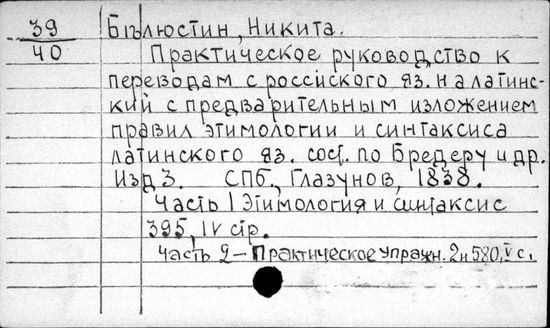 39 Бѣлюстин, Никита.
40 Практическое руководство к
переводам с российского яз. на латинс-
кий с предварительным изложением
правил этимологии и синтаксиса
латинского яз. сост. по Бредеру и др.
Изд 3. СПб., Глазунов, 1838.
Часть I Этимология и синтаксис
395, IV стр.
Часть 2 – Практическое упражн. 2н 580, V с.